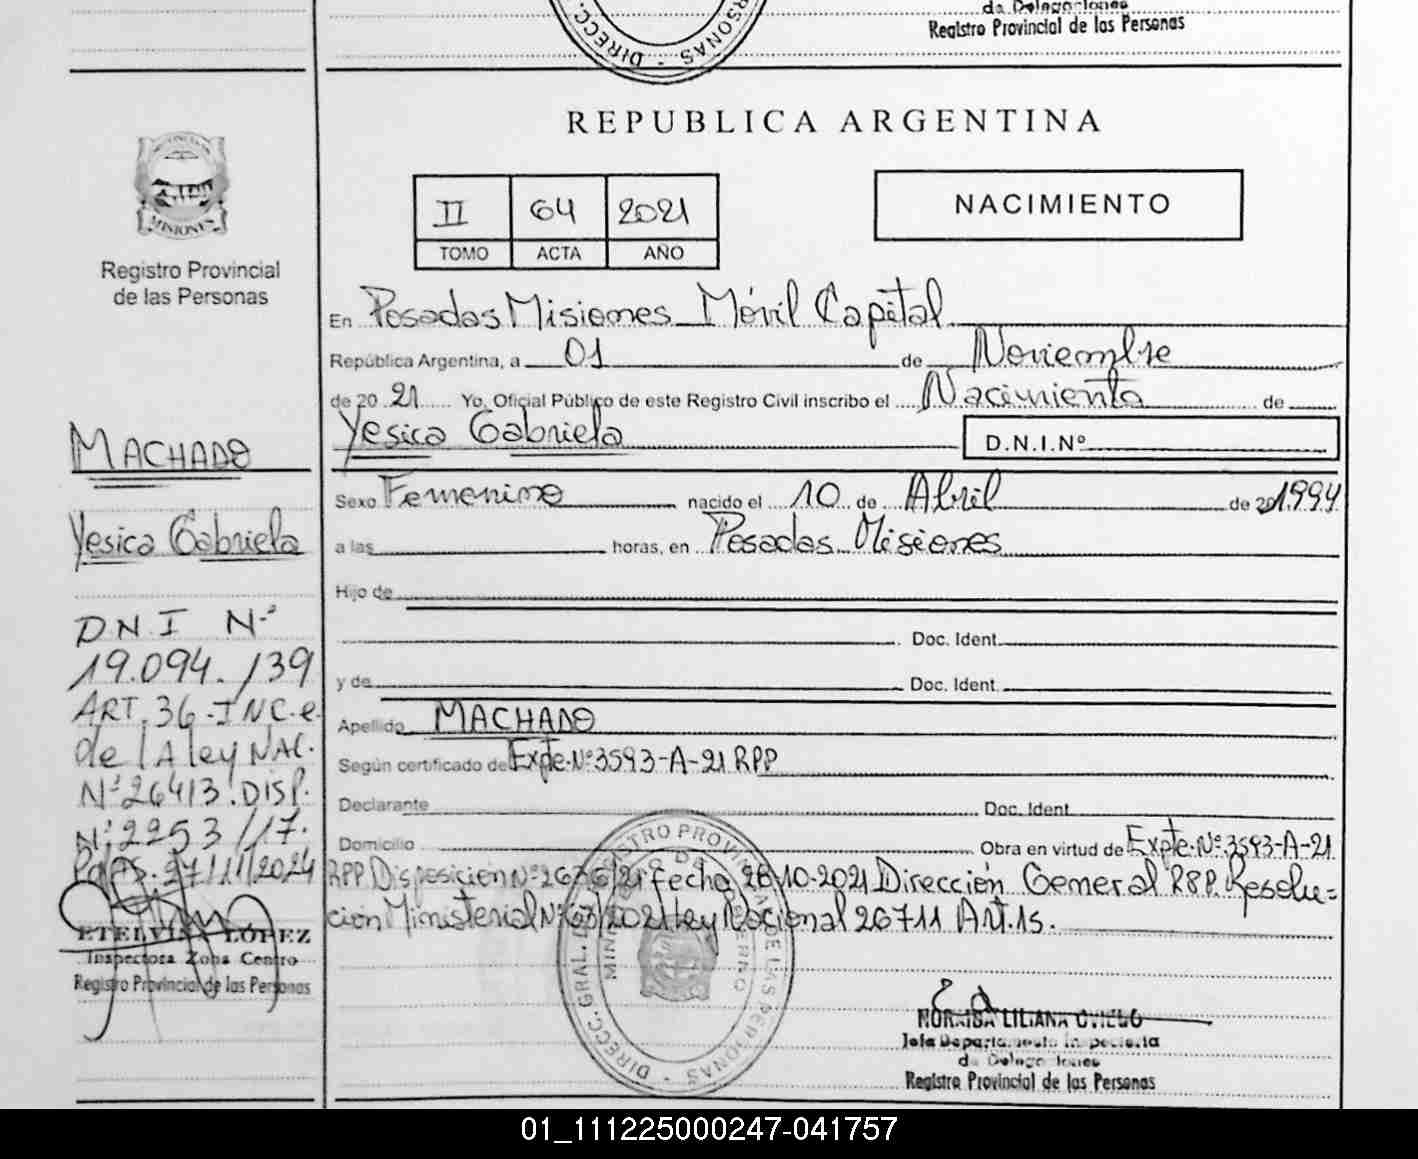 de Delegaciones
Registro Provincial de las Personas
DIRECC. PERSONAS
REPUBLICA ARGENTINA
II 64 2021
TOMO ACTA AÑO
NACIMIENTO
MISIONES
Registro Provincial
de las Personas
En Posadas Misiones Móvil Capital
República Argentina, a 01 de Noviembre
de 2021 Yo, Oficial Público de este Registro Civil inscribo el Nacimiento de
Yesica Gabriela D.N.I.Nº
Sexo Femenino nacido el 10 de Abril de 20 1994
a las horas, en Posadas Misiones
Hijo de
Doc. Ident.
y de Doc. Ident.
Apellido MACHADO
Según certificado de Expte. Nº 3593-A-21 RPP
Declarante Doc. Ident.
Domicilio Obra en virtud de Expte. Nº 3593-A-21
RPP Disposición Nº fecha 28/10-2021 Dirección General Resolu=
ción Ministerial Ley Nacional 26711 Art. 1s.
MACHADO
Yesica Gabriela
DNI Nº
19.094.139
ART. 36-INC.e
de lA ley NAC.
Nº 26413. DISP.
Nº 2253/17.
Pdas. 27/11/2024
ETELVINA LÓPEZ
Inspectora Zona Centro
Registro Provincial de las Personas
LILIANA OVIEDO
Jefa Departamento Inspectoría
de Delegaciones
Registro Provincial de las Personas
01_111225000247-041757